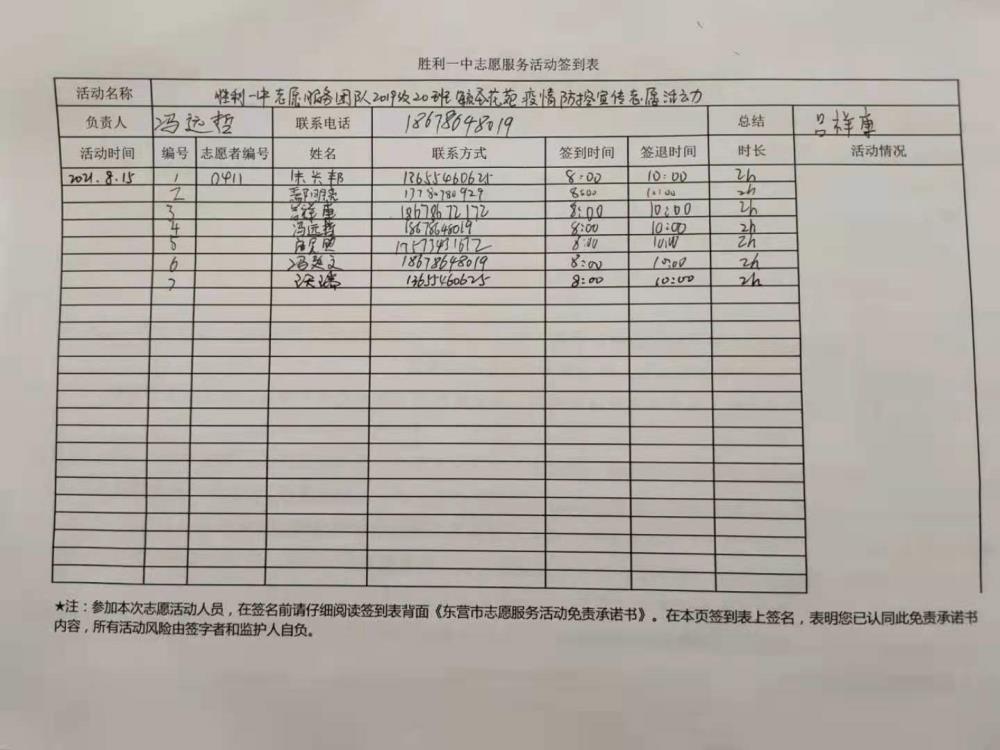 胜利一中志愿服务活动签到表
活动名称 胜利一中志愿服务团队2019级20班 花苑疫情防控宣传志愿活动
负责人 冯远哲 联系电话 18678648019 总结 吕祥康
活动时间 编号 志愿者编号 姓名 联系方式 签到时间 签退时间 时长 活动情况
2021.8.15 1 0411 朱长邦 13655460625 8:00 10:00 2h
2 17780780929 8:00 10:00 2h
3 吕祥康 18678672172 8:00 10:00 2h
4 冯远哲 18678648019 8:00 10:00 2h
5 8:00 10:00 2h
6 冯 18678648019 8:00 10:00 2h
7 13655460625 8:00 10:00 2h
★注：参加本次志愿活动人员，在签名前请仔细阅读签到表背面《东营市志愿服务活动免责承诺书》。在本页签到表上签名，表明您已认同此免责承诺书
内容，所有活动风险由签字者和监护人自负。